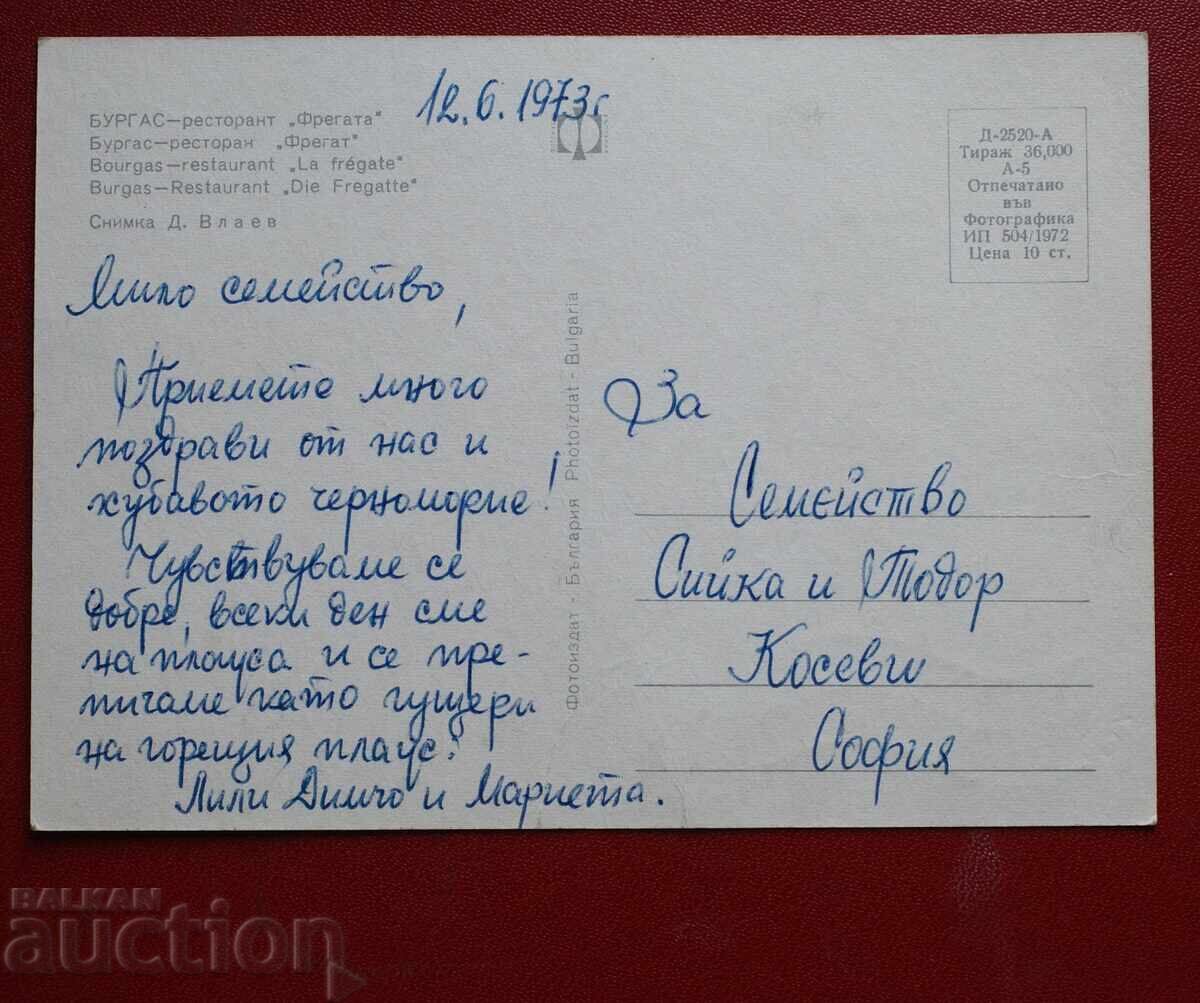 12.6.1973г
БУРГАС—ресторант „Фрегата"
Бургас—ресторан „Фрегат"
Bourgas—restaurant „La frégate"
Burgas—Restaurant „Die Fregatte"
Снимка Д. Влаев
Мило семейство,
Приемете много
поздрави от нас и
хубавото черноморие!
Чувствуваме се
добре, всеки ден сме
на плауса и се пре-
пичаме като гущери
на горещия плаус.
Лили Димчо и Мариета.
Фотоиздат - България Photoizdat - Bulgaria
Д-2520-А
Тираж 36,000
А-5
Отпечатано
във
Фотографика
ИП 504/1972
Цена 10 ст.
За
Семейство
Сийка и Тодор
Косеви
София
BALKAN
auction